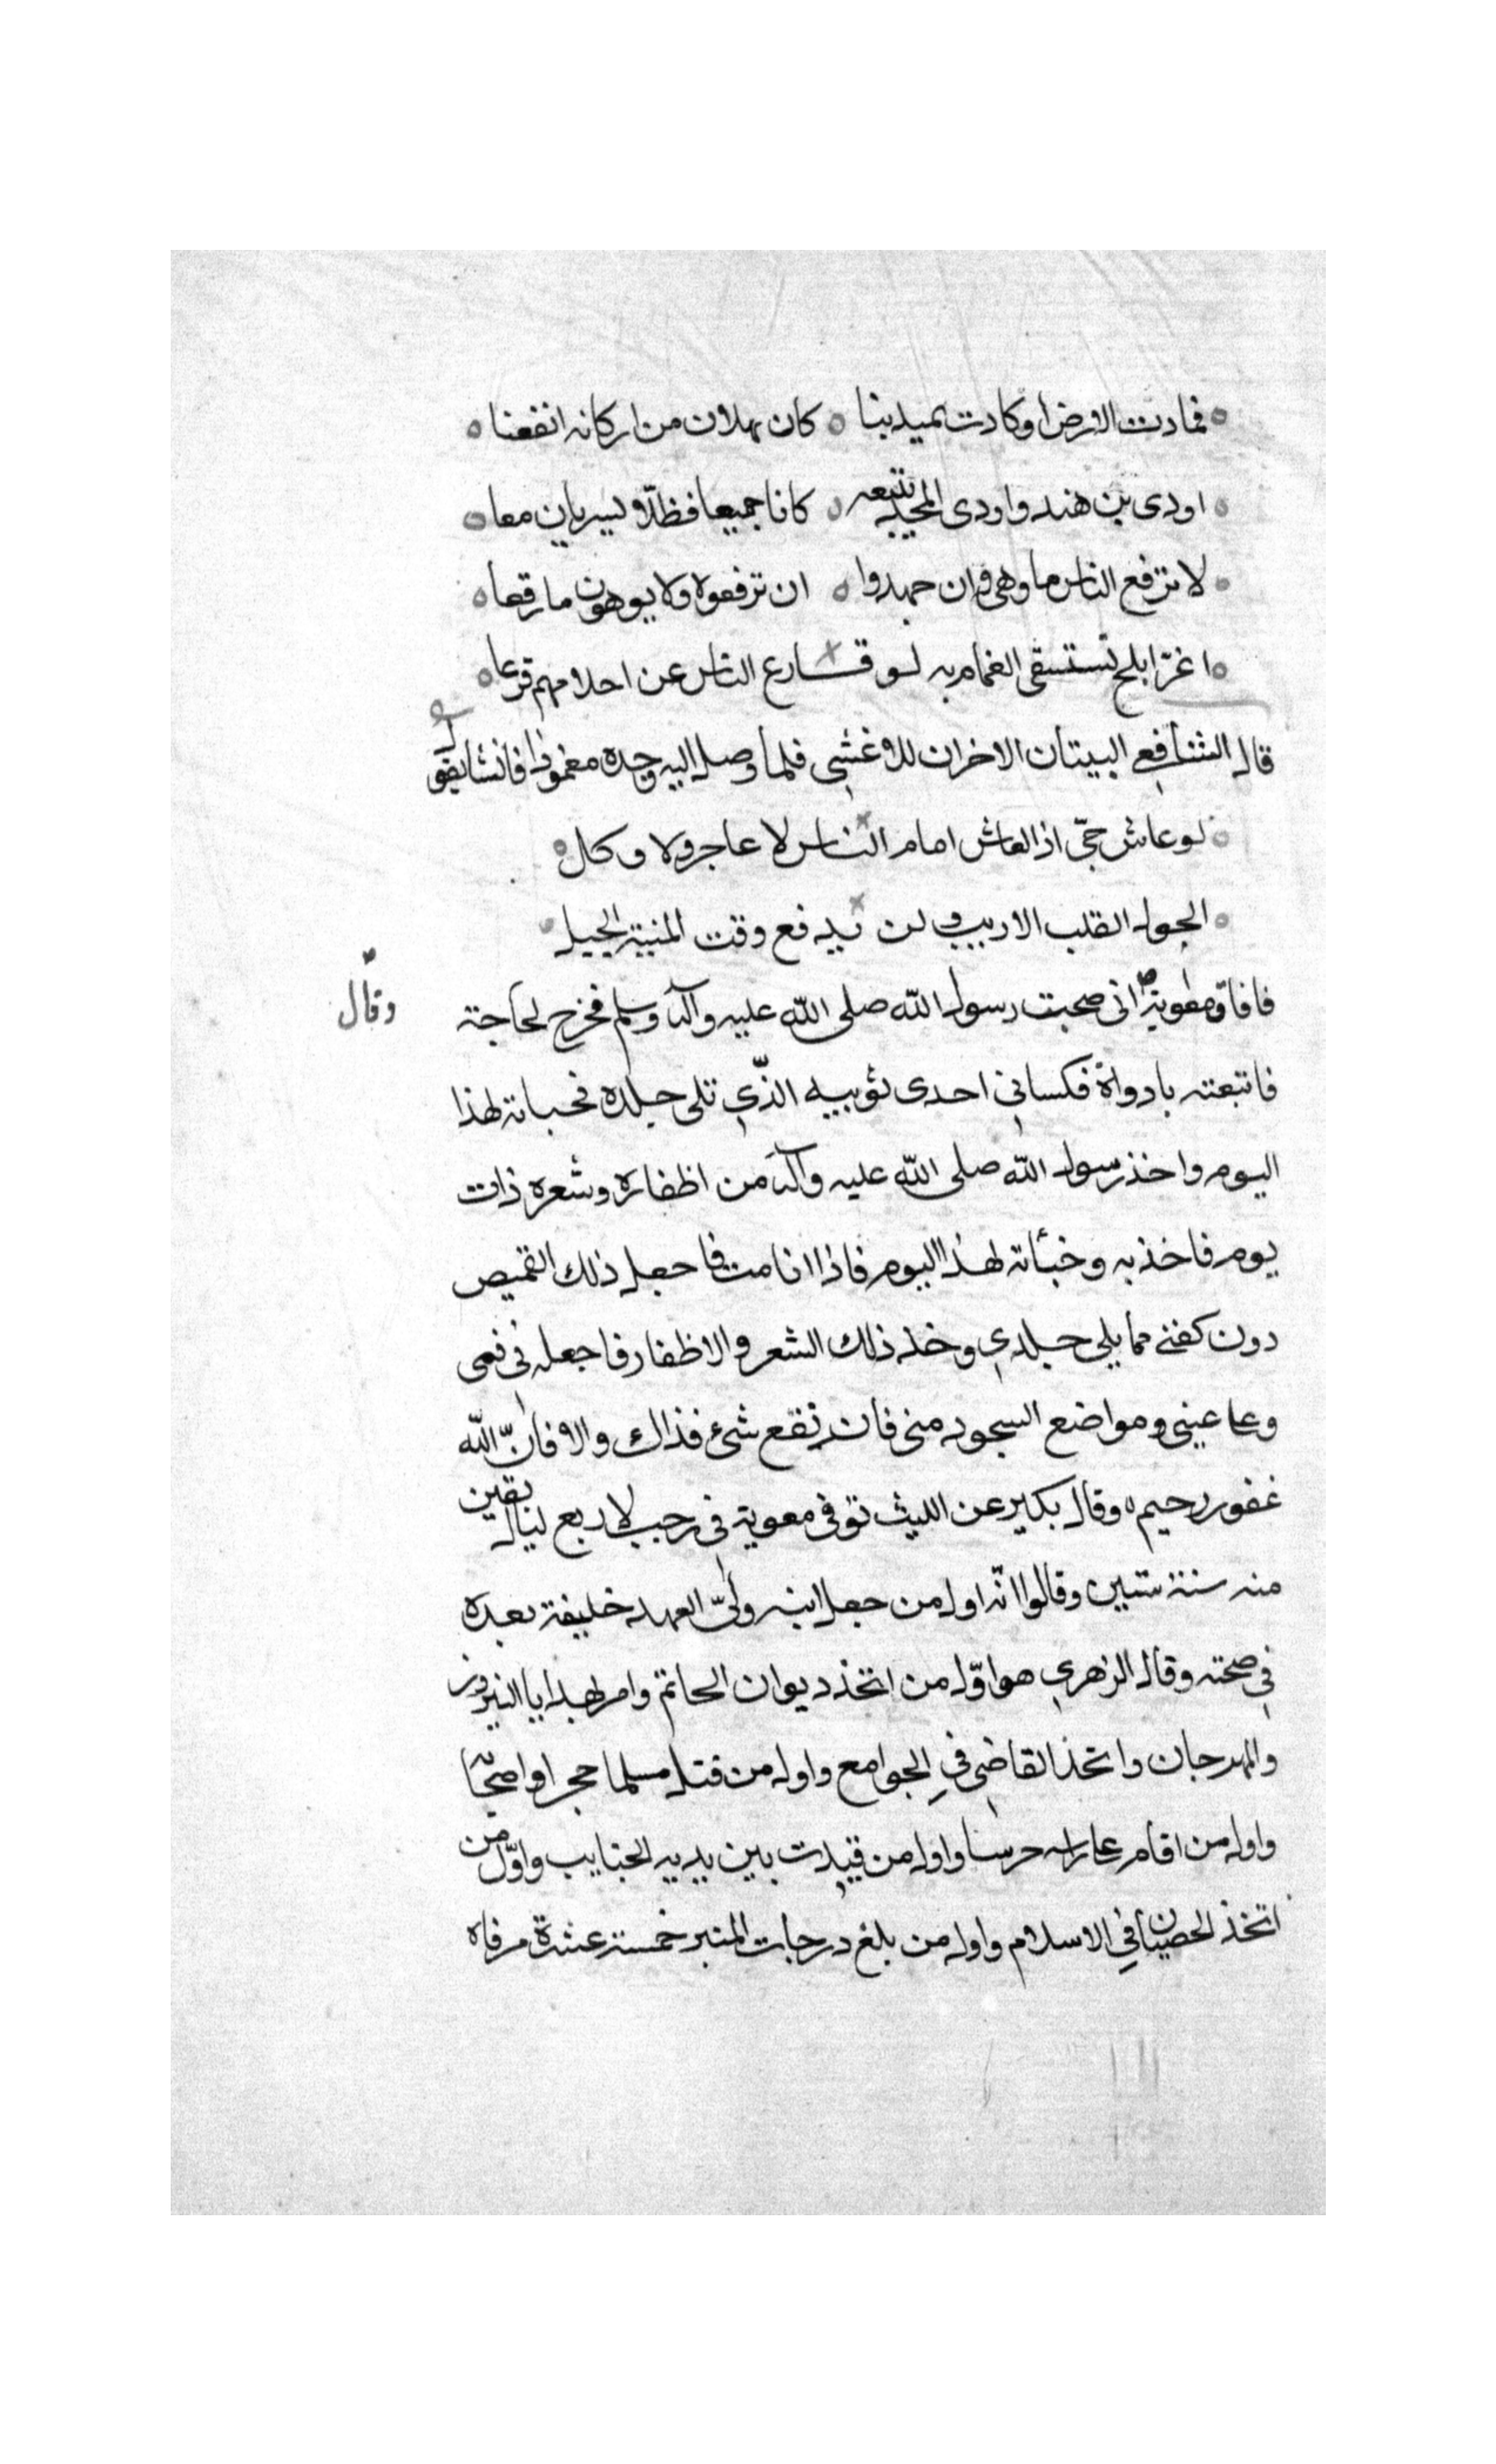 فمادت الارض او كادت تميد بنا كان ثهلان من اركانه انقعنا
اودى بن هند واودى المجد يتبعه كانا جميعا فظلا يسريان معا
لا ترفع الناس ما وهى وان جهدوا ان ترفعوه ولا يوهون ما رقعا
اغر ابلج تستسقى الغمام به لو قارع الناس عن احلامهم قرعا
قال الشافعي البيتان الاخران للاعشى فلما وصل اليه وجده مغمورا فانشا يقول
لو عاش حي اذا لعاش امام الناس لا عاجز ولا وكل
الحول القلب الاريب ولن يدفع وقت المنية الحيل
فافاق معوية وقال اني صحبت رسول الله صلى الله عليه وآله وسلم فخرج لحاجته
فاتبعته باداوة فكساني احدى ثوبيه الذي تلى جلده فخباته لهذا
اليوم واخذ رسول الله صلى الله عليه وآله من اظفاره وشعره ذات
يوم فاخذ به وخبأته لهذا اليوم فاذا انا مت فاجعل ذلك القميص
دون كفني مما يلي جلدي وخذ ذلك الشعر والاظفار فاجعله في فمي
وعلى عيني ومواضع السجود مني فان نفع شئ فذاك والا فان الله
غفور رحيم وقال بكير عن الليث توفى معوية في رجب لاربع ليال بقين
منه سنة ستين وقالوا انه اول من جعل ابنه ولي العهد خليفة بعده
في صحته وقال الزهري هو اول من اتخذ ديوان الخاتم وامر لهدايا النيروز
والمهرجان واتخذ القاضي في الجوامع واول من قتل مسلما حجرا واصحابه
واول من اقام على راسه حرسا واول من قيدت بين يديه الجنايب واول من
اتخذ الخصيان في الاسلام واول من بلغ درجات المنبر خمسة عشرة مرقاه